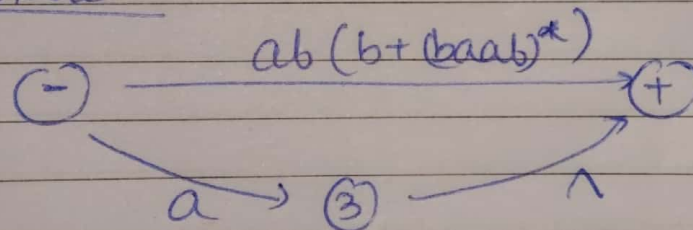 ab(b+(baab)*)
- +
a 3 ^